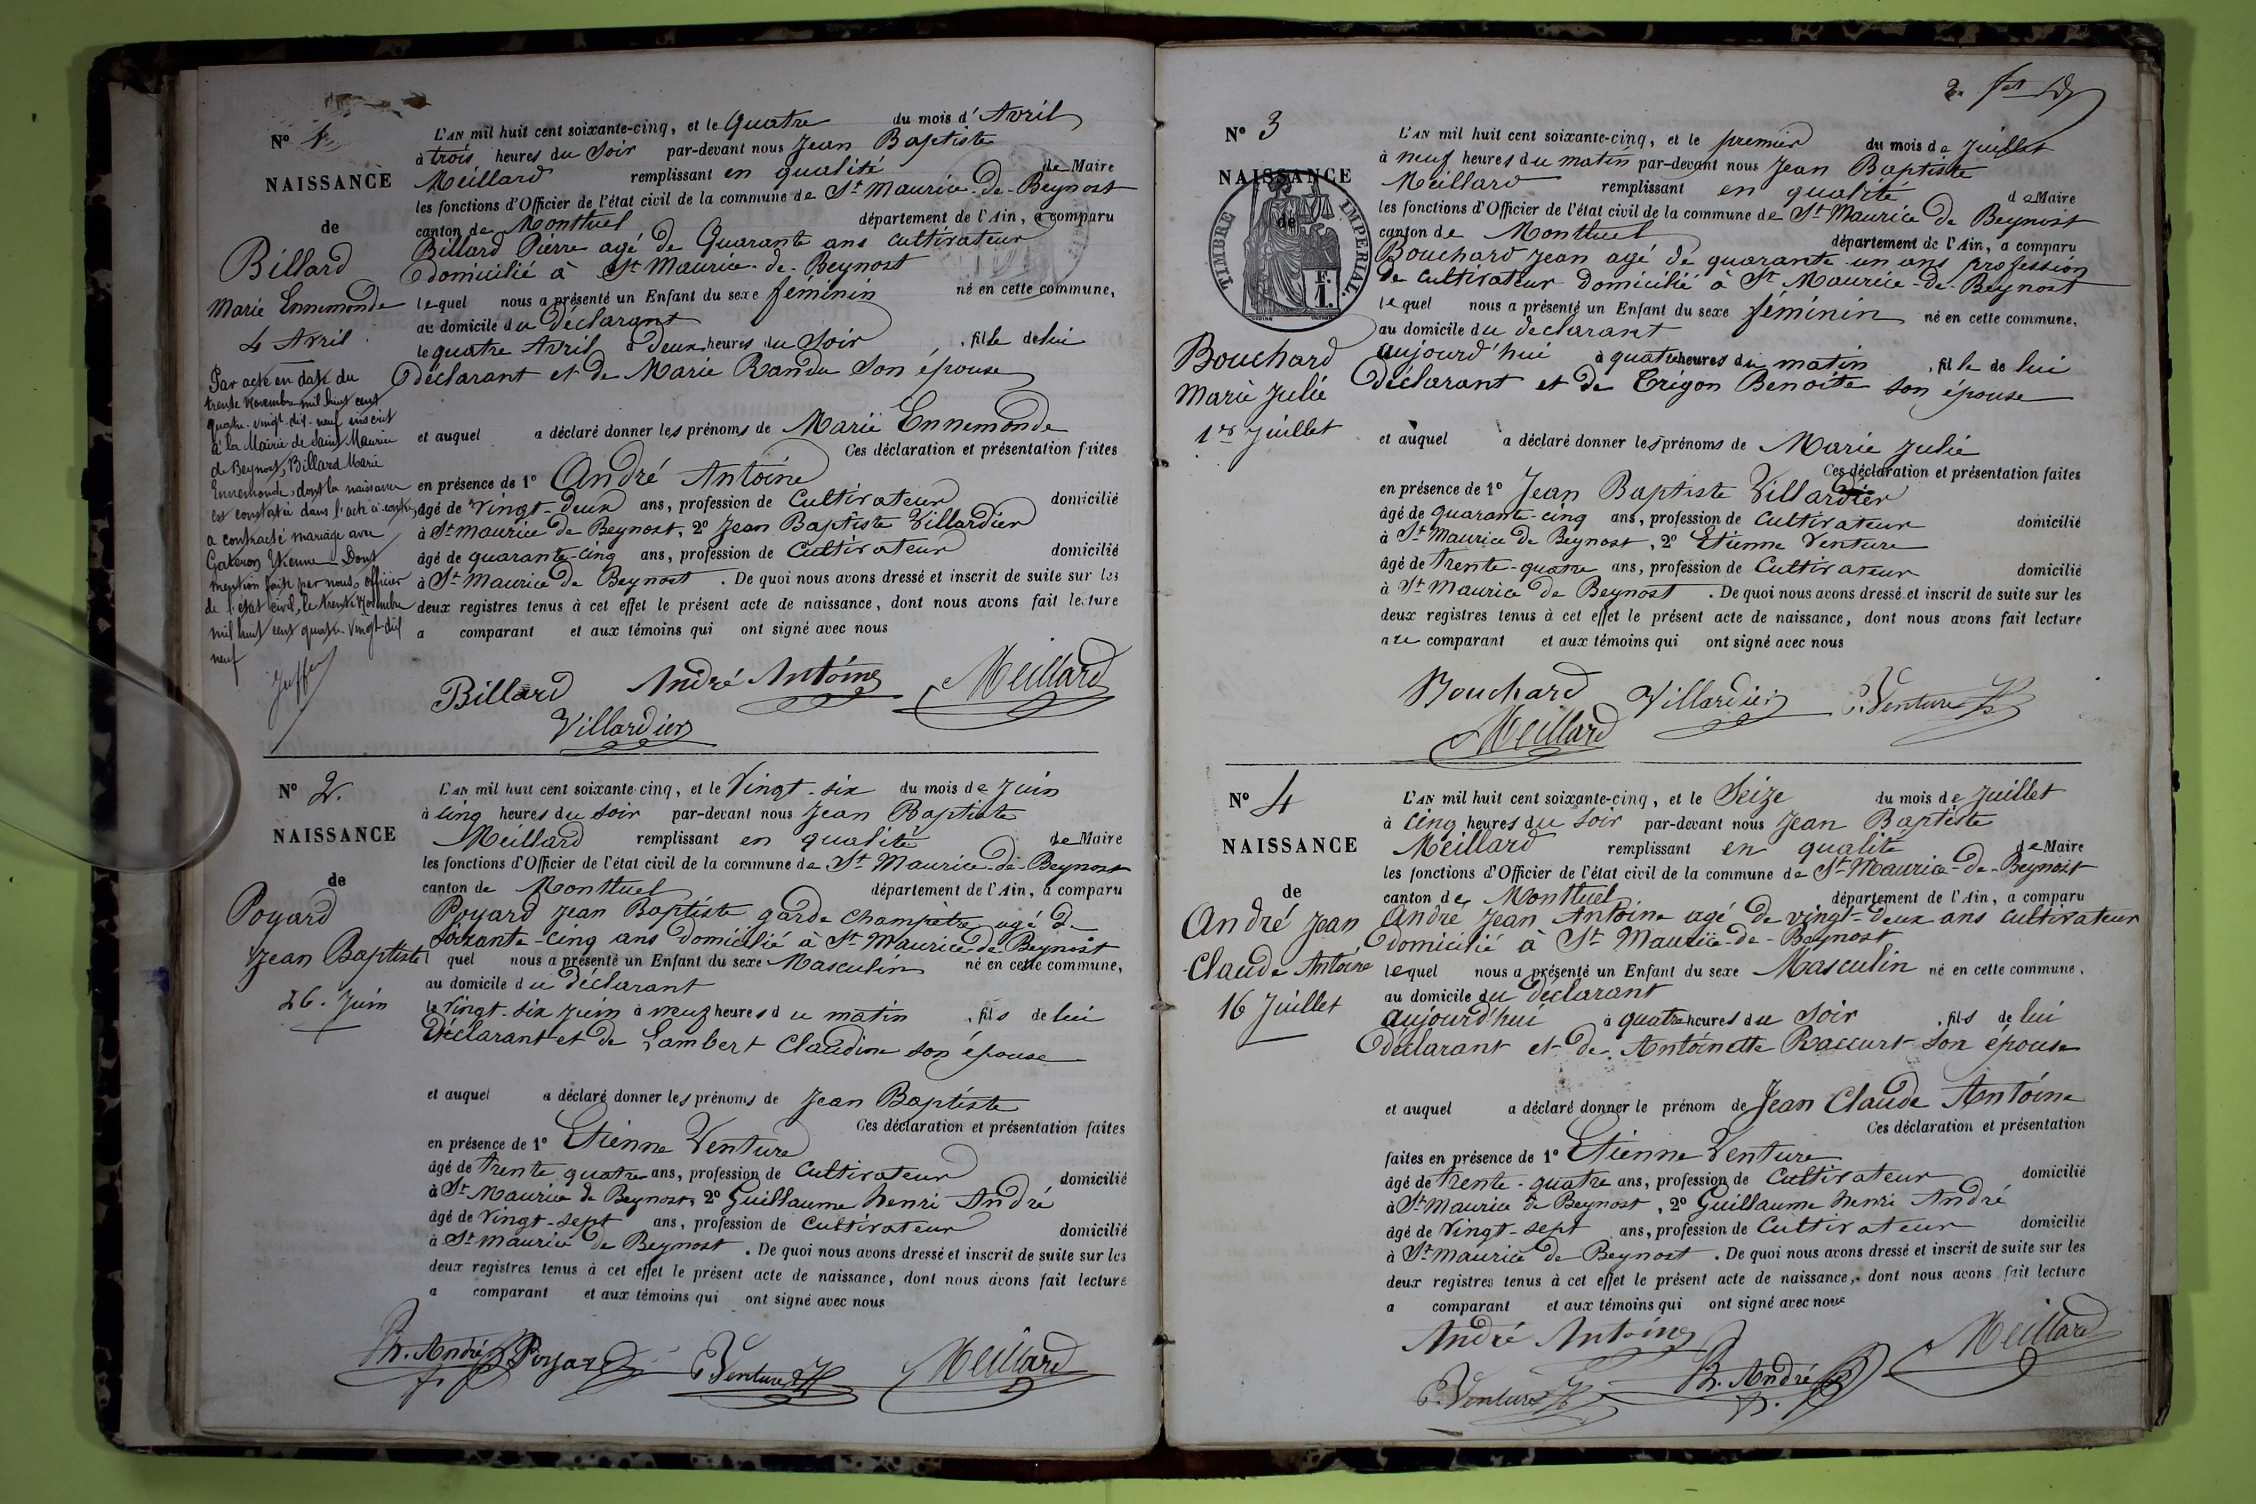 Nº 1
NAISSANCE
de
Billard
Marie Ennemonde
4 Avril
Par acte en date du
trente Novembre mil huit cent
quatre-vingt-dix-neuf inscrit
à la Mairie de Saint Maurice
de Beynost, Billard Marie
Ennemonde, dont la naissance
est constatée dans l'acte ci-contre,
a contracté mariage avec
Etienne. Dont
mention faite par nous, officier
de l'état civil, le trente Novembre
mil huit cent quatre-vingt-dix
neuf
L'AN mil huit cent soixante-cinq, et le Quatre du mois d'Avril
à trois heures du Soir par-devant nous Jean Baptiste
Meillard remplissant en qualité de Maire
les fonctions d'Officier de l'état civil de la commune de St Maurice-de-Beynost
canton de Montluel département de l'Ain, a comparu
Billard Pierre agé de Quarante ans cultivateur
domicilié à St Maurice-de-Beynost
lequel nous a présenté un Enfant du sexe féminin né en cette commune,
au domicile du déclarant
le quatre Avril à deux heures du Soir, fille de lui
déclarant et de Marie Randu Son épouse
et auquel a déclaré donner les prénoms de Marie Ennemonde
Ces déclaration et présentation faites
en présence de 1º André Antoine
âgé de vingt-deux ans, profession de Cultivateur domicilié
à St Maurice de Beynost, 2º Jean Baptiste Villardier
âgé de quarante-cinq ans, profession de Cultivateur domicilié
à St Maurice de Beynost. De quoi nous avons dressé et inscrit de suite sur les
deux registres tenus à cet effet le présent acte de naissance, dont nous avons fait lecture
a comparant et aux témoins qui ont signé avec nous
Billard André Antoine Meillard
Villardier
Nº 2.
NAISSANCE
de
Poyard
Jean Baptiste
26. Juin
L'AN mil huit cent soixante-cinq, et le Vingt-six du mois de Juin
à cinq heures du soir par-devant nous Jean Baptiste
Meillard remplissant en qualité de Maire
les fonctions d'Officier de l'état civil de la commune de St Maurice-de-Beynost
canton de Montluel département de l'Ain, a comparu
Poyard Jean Baptiste garde champêtre agé de
soixante-cinq ans domicilié à St Maurice-de-Beynost
l quel nous a présenté un Enfant du sexe Masculin né en cette commune,
au domicile du déclarant
le Vingt-six juin à neuf heures du matin, fils de lui
Déclarant et de Lambert Claudine son épouse
et auquel a déclaré donner les prénoms de Jean Baptiste
Ces déclaration et présentation faites
en présence de 1º Etienne Venture
âgé de trente quatre ans, profession de Cultivateur domicilié
à St Maurice de Beynost, 2º Guillaume henri André
âgé de Vingt-sept ans, profession de Cultivateur domicilié
à St maurice de Beynost. De quoi nous avons dressé et inscrit de suite sur les
deux registres tenus à cet effet le présent acte de naissance, dont nous avons fait lecture
a comparant et aux témoins qui ont signé avec nous
h. André Poyard Venture Meillard
2
Nº 3
NAISSANCE
de
TIMBRE IMPERIAL
F.
1.
Bouchard
Marie Julie
1er Juillet
L'AN mil huit cent soixante-cinq, et le premier du mois de Juillet
à neuf heures du matin par-devant nous Jean Baptiste
Meillard remplissant en qualité de Maire
les fonctions d'Officier de l'état civil de la commune de St Maurice de Beynost
canton de Montluel département de l'Ain, a comparu
Bouchard Jean agé de quarante-un ans profession
de cultivateur domicilié à St Maurice-de-Beynost
lequel nous a présenté un Enfant du sexe féminin né en cette commune,
au domicile du declarant
aujourd'hui à quatre heures du matin, fille de lui
déclarant et de Trigon Benoite son épouse
et auquel a déclaré donner les prénoms de Marie Julie
Ces déclaration et présentation faites
en présence de 1º Jean Baptiste Villardier
âgé de quarante-cinq ans, profession de Cultivateur domicilié
à St Maurice de Beynost, 2º Etienne Venture
âgé de trente-quatre ans, profession de Cultivateur domicilié
à St Maurice de Beynost. De quoi nous avons dressé et inscrit de suite sur les
deux registres tenus à cet effet le présent acte de naissance, dont nous avons fait lecture
a comparant et aux témoins qui ont signé avec nous
Bouchard Villardier Venture
Meillard
Nº 4
NAISSANCE
de
André Jean
Claude Antoine
16 Juillet
L'AN mil huit cent soixante-cinq, et le Seize du mois de Juillet
à cinq heures du Soir par-devant nous Jean Baptiste
Meillard remplissant en qualité de Maire
les fonctions d'Officier de l'état civil de la commune de St Maurice-de-Beynost
canton de Montluel département de l'Ain, a comparu
André Jean Antoine agé de vingt-deux ans cultivateur
domicilié à St Maurice-de-Beynost
lequel nous a présenté un Enfant du sexe Masculin né en cette commune.
au domicile du déclarant
aujourd'hui à quatre heures du Soir, fils de lui
déclarant et de Antoinette Raccurt Son épouse
et auquel a déclaré donner le prénom de Jean Claude Antoine
Ces déclaration et présentation
faites en présence de 1º Etienne Venture
âgé de trente-quatre ans, profession de Cultivateur domicilié
à St Maurice de Beynost, 2º Guillaume henri André
âgé de Vingt-sept ans, profession de Cultivateur domicilié
à St Maurice de Beynost. De quoi nous avons dressé et inscrit de suite sur les
deux registres tenus à cet effet le présent acte de naissance, dont nous avons fait lecture
a comparant et aux témoins qui ont signé avec nous
André Antoine Meillard
Venture h. André